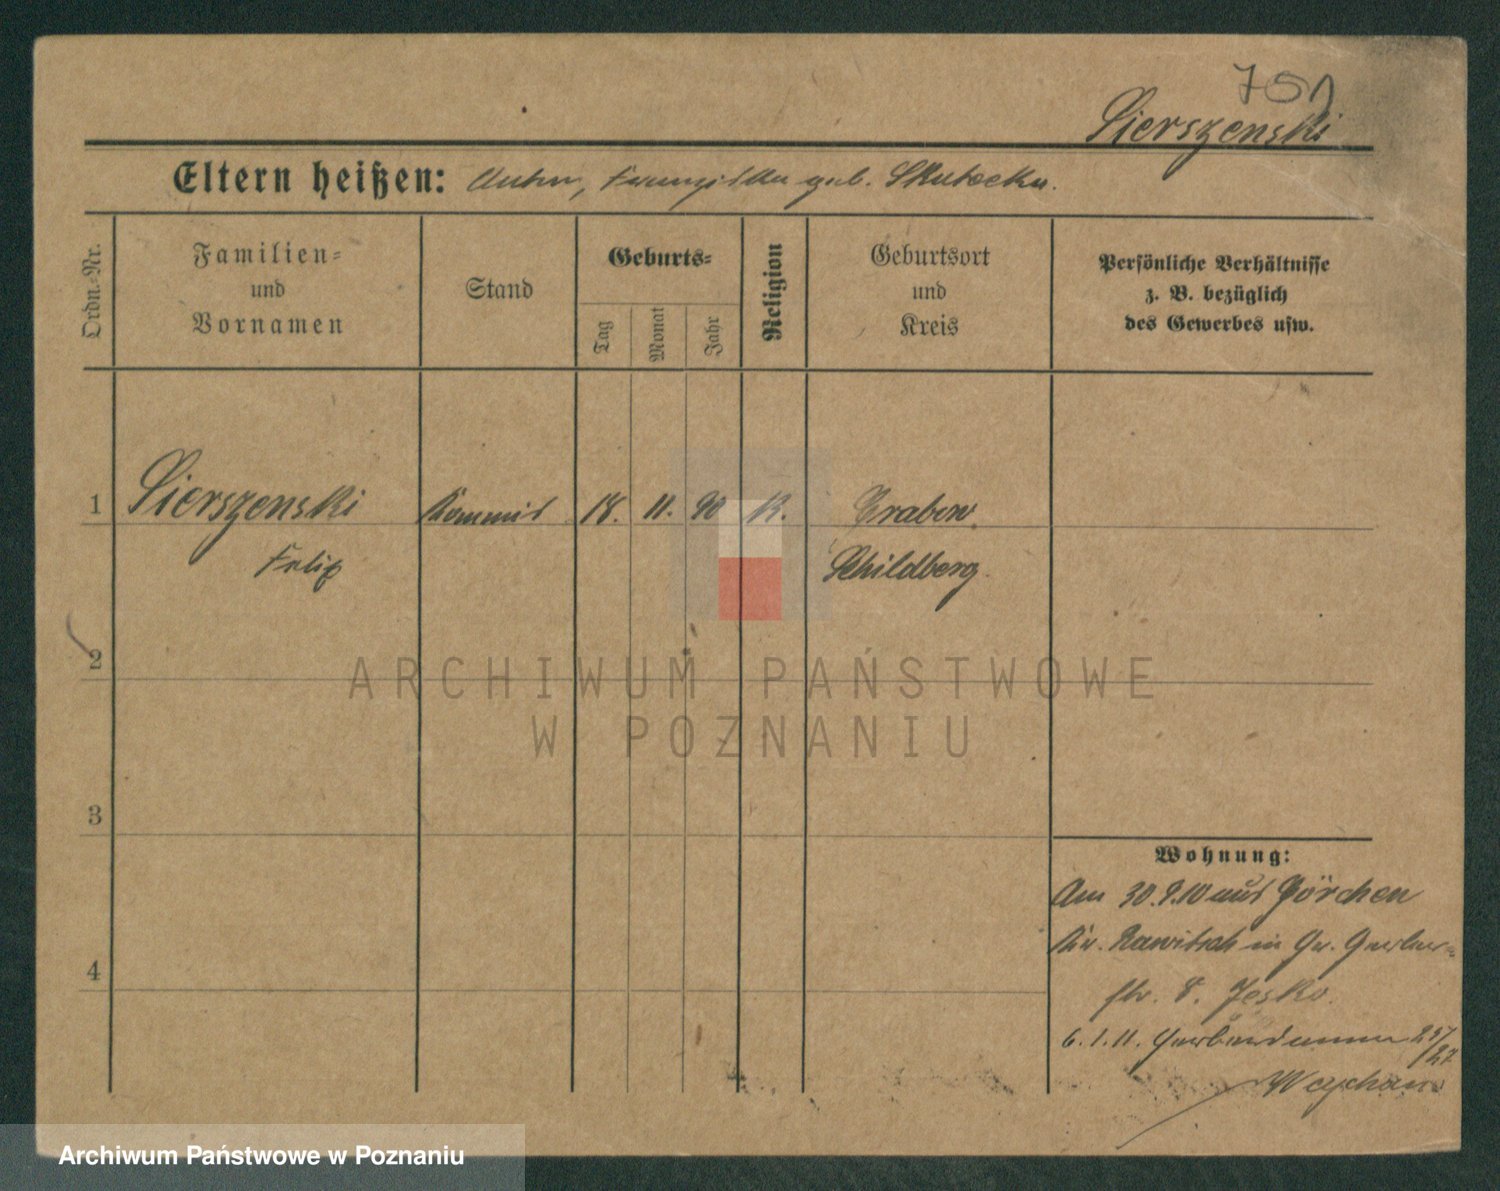 751
Sierszenski
Eltern heißen: Anton, Franziska geb. Skutecka.
Ordn.-Nr.
Familien-
und
Vornamen
Stand
Geburts-
Tag
Monat
Jahr
Religion
Geburtsort
und
Kreis
Persönliche Verhältnisse
z. B. bezüglich
des Gewerbes usw.
1 Sierszenski Kommis 18. 11. 90 K. Grabow
Felix Schildberg
2
3
4
Wohnung:
Am 30.9.10 aus Görchen
Kr. Rawitsch in Gr. Gerber-
str. 8. Jesko
6.1.11. Gerberdamm 25/
/27
ARCHIWUM PAŃSTWOWE
W POZNANIU
Archiwum Państwowe w Poznaniu